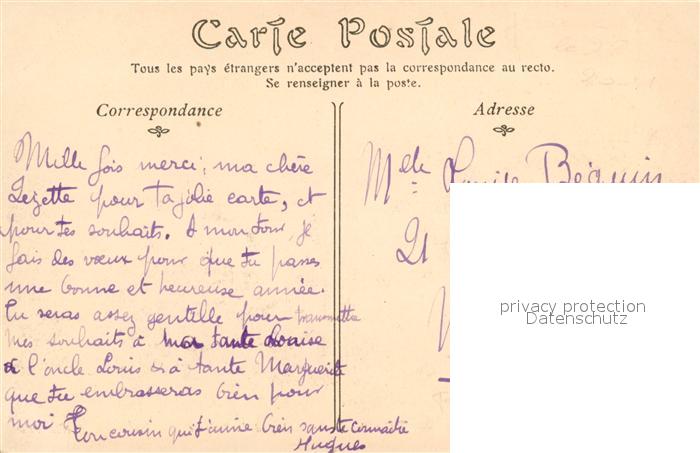 Carte Postale
Tous les pays étrangers n'acceptent pas la correspondance au recto.
Se renseigner à la poste.
Correspondance
Mille fois merci, ma chère
Lezette pour ta jolie carte, et
pour tes souhaits. A mon tour, je
fais des vœux pour que tu passes
une bonne et heureuse année.
Tu seras assez gentille pour transmettre
mes souhaits à ma tante Louise
à l'oncle Louis & à tante Marguerite
que tu embrasseras bien pour
moi
Ton cousin qui t'aime bien sans te connaître
Hugues
Adresse
Melle Louise Béguin
21
privacy protection
Datenschutz